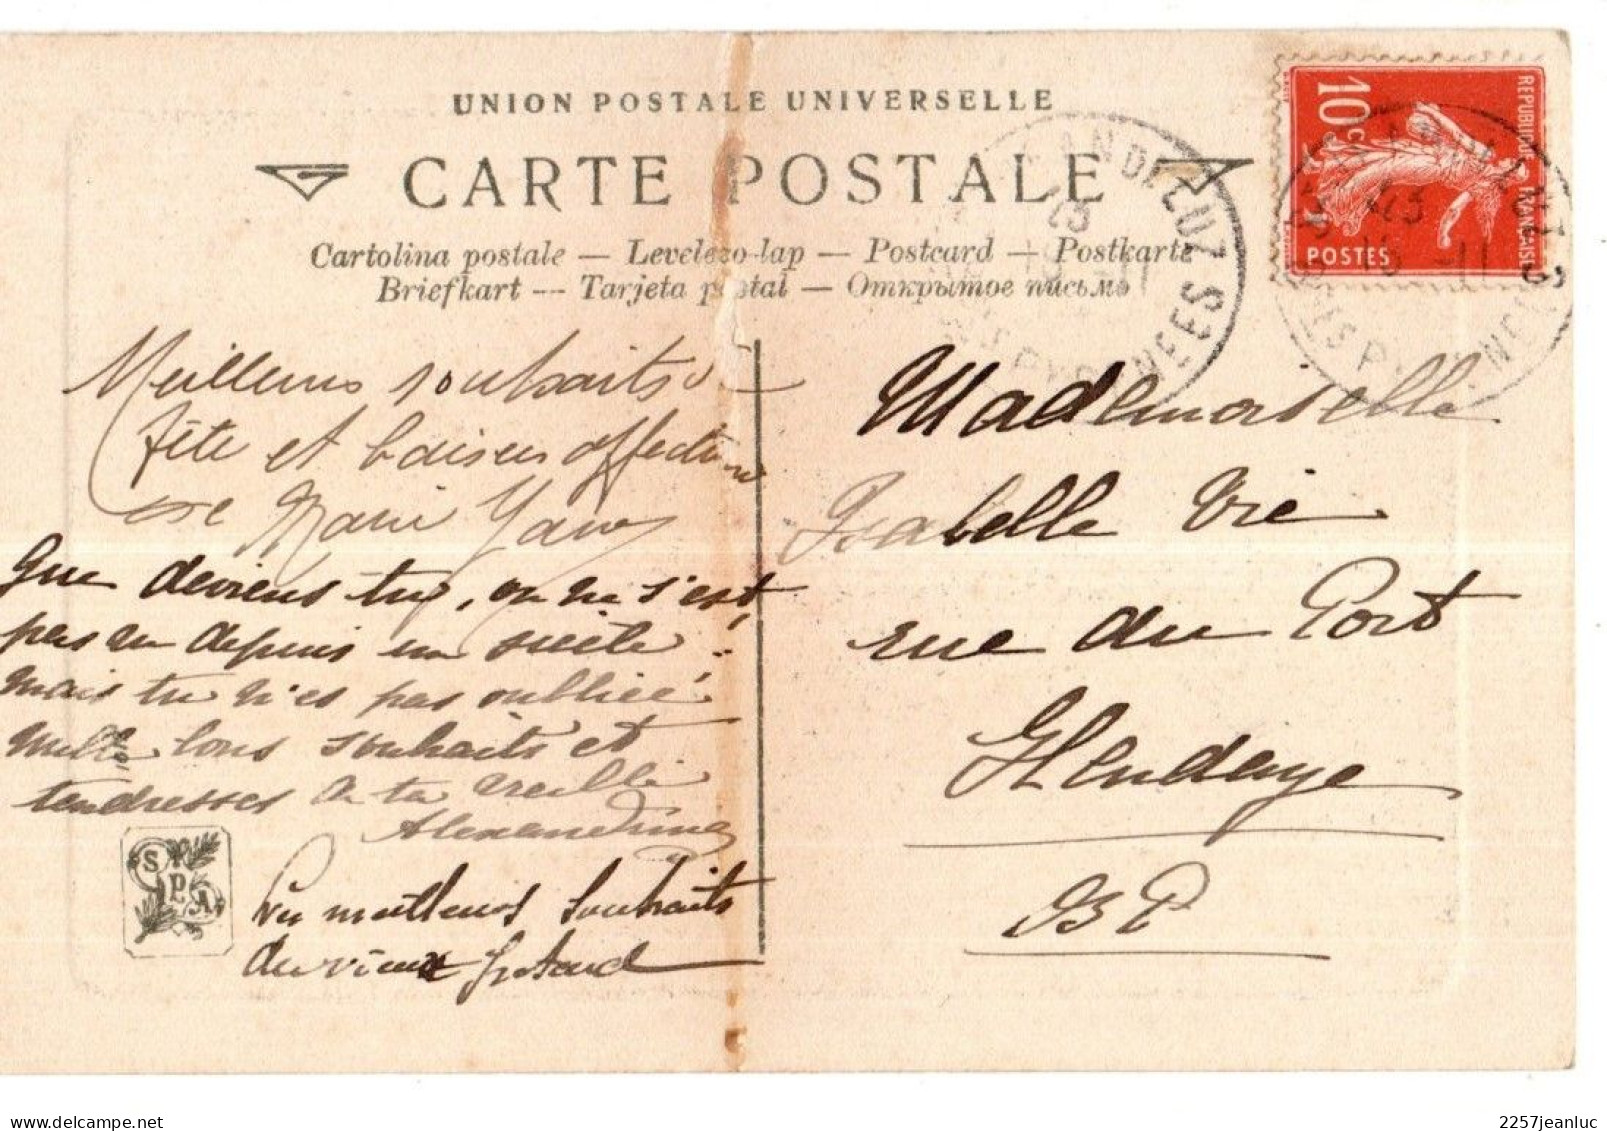 UNION POSTALE UNIVERSELLE
CARTE POSTALE
Cartolina postale — Levelezo-lap — Postcard — Postkarte
Briefkart — Tarjeta postal — Открытое письмо
10 c
REPUBLIQUE FRANÇAISE
POSTES
Meilleurs souhaits
fête et baisers
Marie
Que deviens tu, on ne s'est
pas vu depuis un siècle
mais tu n'es pas oubliée
mille bons souhaits et
tendresses de ta vieille
Alexandrine
meilleurs souhaits
du vieux
S P A
Mademoiselle
Isabelle Vié
rue du Port
Hendaye
B P
2257jeanluc